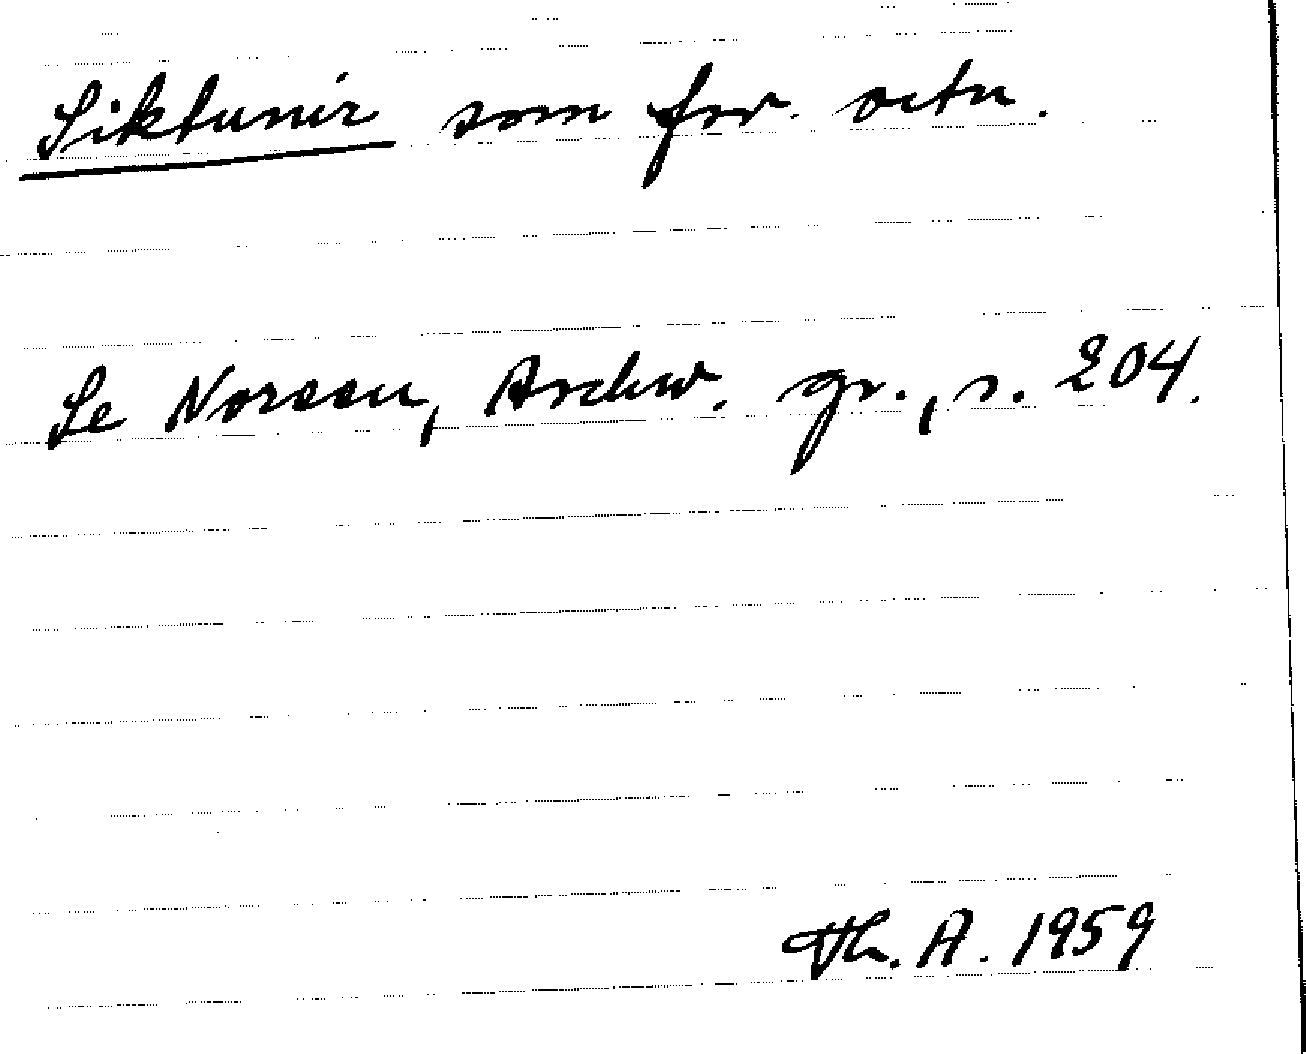 Siktunir som for. ortn.
Se Noreen, Aschw. gr., s. 204.
Th. A. 1959